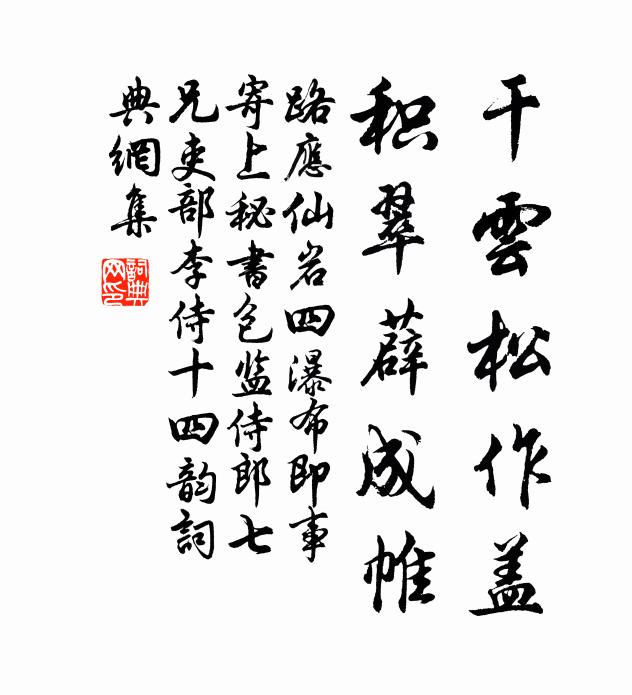 干雲松作盖
积翠薜成帷
路應仙岩四瀑布即事
寄上秘書包监侍郎七
兄吏部李侍十四韵詞
典網集
詞典网印